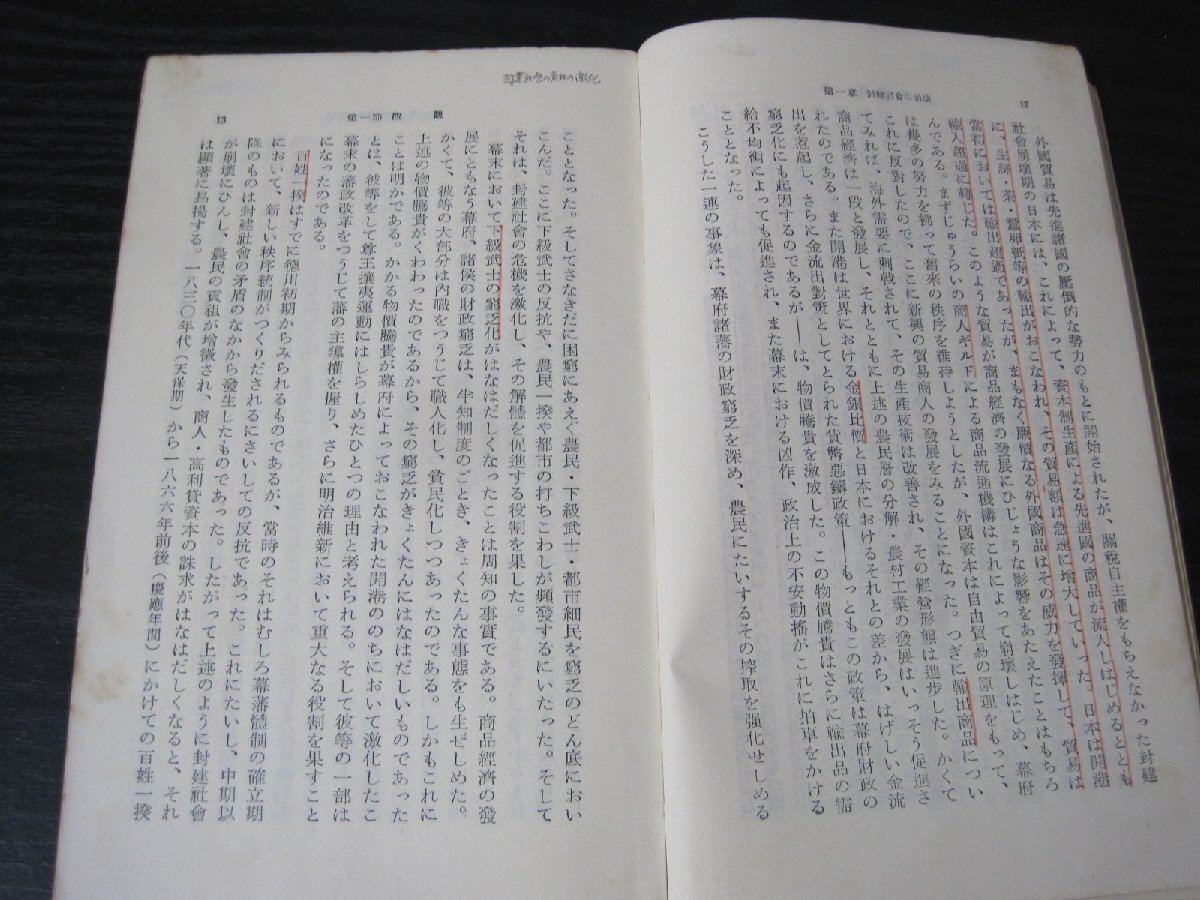 12
第一章 封建社會の崩壞
外國貿易は先進諸國の壓倒的な勢力のもとに開始されたが、關稅自主權をもちえなかった封建
社會崩壞期の日本には、これによって、資本制生產による先進國の商品が流入しはじめるととも
に、生絲・茶・蠶卵紙等の輸出がおこなわれ、その貿易額は急速に增大していった。日本は開港
當初においては輸出超過であったが、まもなく廉價なる外國商品はその威力を發揮して、貿易は
輸入超過に轉じた。このような貿易が商品經濟の發展にひじょうな影響をあたえたことはもちろ
んである。まずじゅうらいの商人ギルドによる商品流通機構はこれによって崩壞しはじめ、幕府
は幾多の努力を拂って舊來の秩序を維持しようとしたが、外國資本は自由貿易の原理をもって、
これに反對したので、ここに新興の貿易商人の發展をみることになった。つぎに輸出商品につい
てみれば、海外需要に刺戟されて、その生產技術は改善され、その經營形態は進步した。かくて
商品經濟は一段と發展し、それとともに上述の農民層の分解・農村工業の發展はいっそう促進さ
れたのである。また開港は世界における金銀比價と日本におけるそれとの差から、はげしい金流
出を惹起し、さらに金流出對策としてとられた貨幣惡鑄政策——もっともこの政策は幕府財政の
窮乏化にも起因するのであるが——は、物價騰貴を激成した。この物價騰貴はさらに輸出品の需
給不均衡によっても促進され、また幕末における凶作、政治上の不安動搖がこれに拍車をかける
こととなった。
こうした一連の事象は、幕府諸藩の財政窮乏を深め、農民にたいするその搾取を强化せしめる
13
第一節 概 觀
こととなった。そしてさなきだに困窮にあえぐ農民・下級武士・都市細民を窮乏のどん底におい
こんだ。ここに下級武士の反抗や、農民一揆や都市の打ちこわしが頻發するにいたった。そして
それは、封建社會の危機を激化し、その解體を促進する役割を果した。
幕末において下級武士の窮乏化がはなはだしくなったことは周知の事實である。商品經濟の發
展にともなう幕府、諸侯の財政窮乏は、半知制度のごとき、きょくたんな事態をも生ぜしめた。
かくて、彼等の大部分は內職をつうじて職人化し、貧民化しつつあったのである。しかもこれに
上述の物價騰貴がくわわったのであるから、その窮乏がきょくたんにはなはだしいものであった
ことは明かである。かかる物價騰貴が幕府によっておこなわれた開港ののちにおいて激化したこ
とは、彼等をして尊王攘夷運動にはしらしめたひとつの理由と考えられる。そして彼等の一部は
幕末の藩政改革をつうじて藩の主導權を握り、さらに明治維新において重大なる役割を果すこと
になったのである。
百姓一揆はすでに德川初期からみられるものであるが、當時のそれはむしろ幕藩體制の確立期
において、新しい秩序統制がつくりだされるにさいしての反抗であった。これにたいし、中期以
降のものは封建社會の矛盾のなかから發生したものであった。したがって上述のように封建社會
が崩壞にひんし、農民の貢租が增徵され、商人・高利貸資本の誅求がはなはだしくなると、それ
は顯著に昂揚する。一八三〇年代（天保期）から一八六六年前後（慶應年間）にかけての百姓一揆